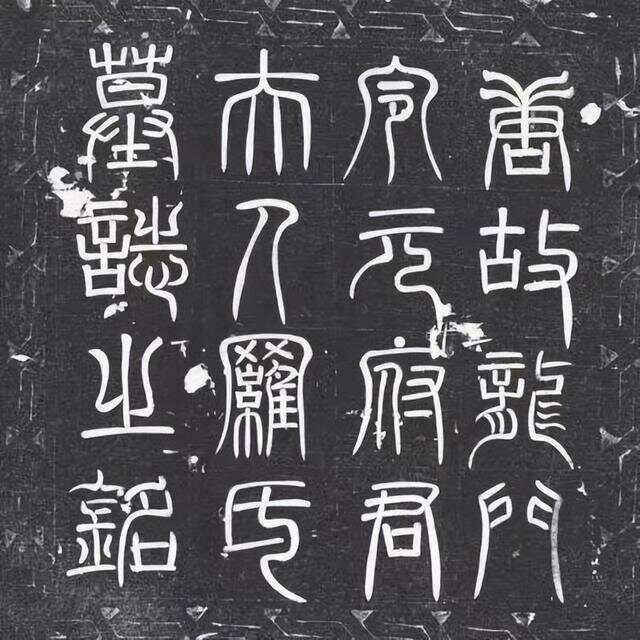 唐故龍門
令元府君
夫人羅氏
墓誌之銘